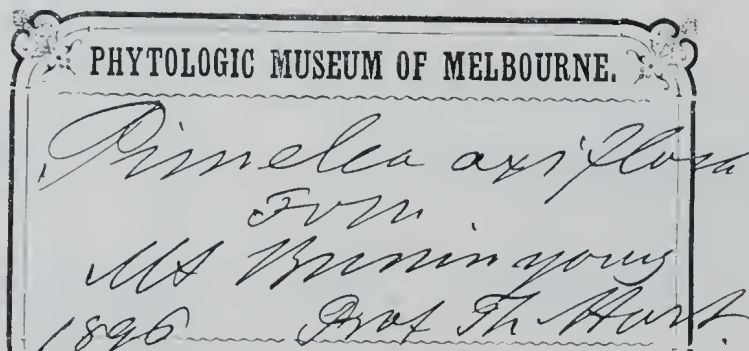 PHYTOLOGIC MUSEUM OF MELBOURNE.
Pimelea axiflora
Fvm
Mt Buninyong
1896 Prof Th Hart.